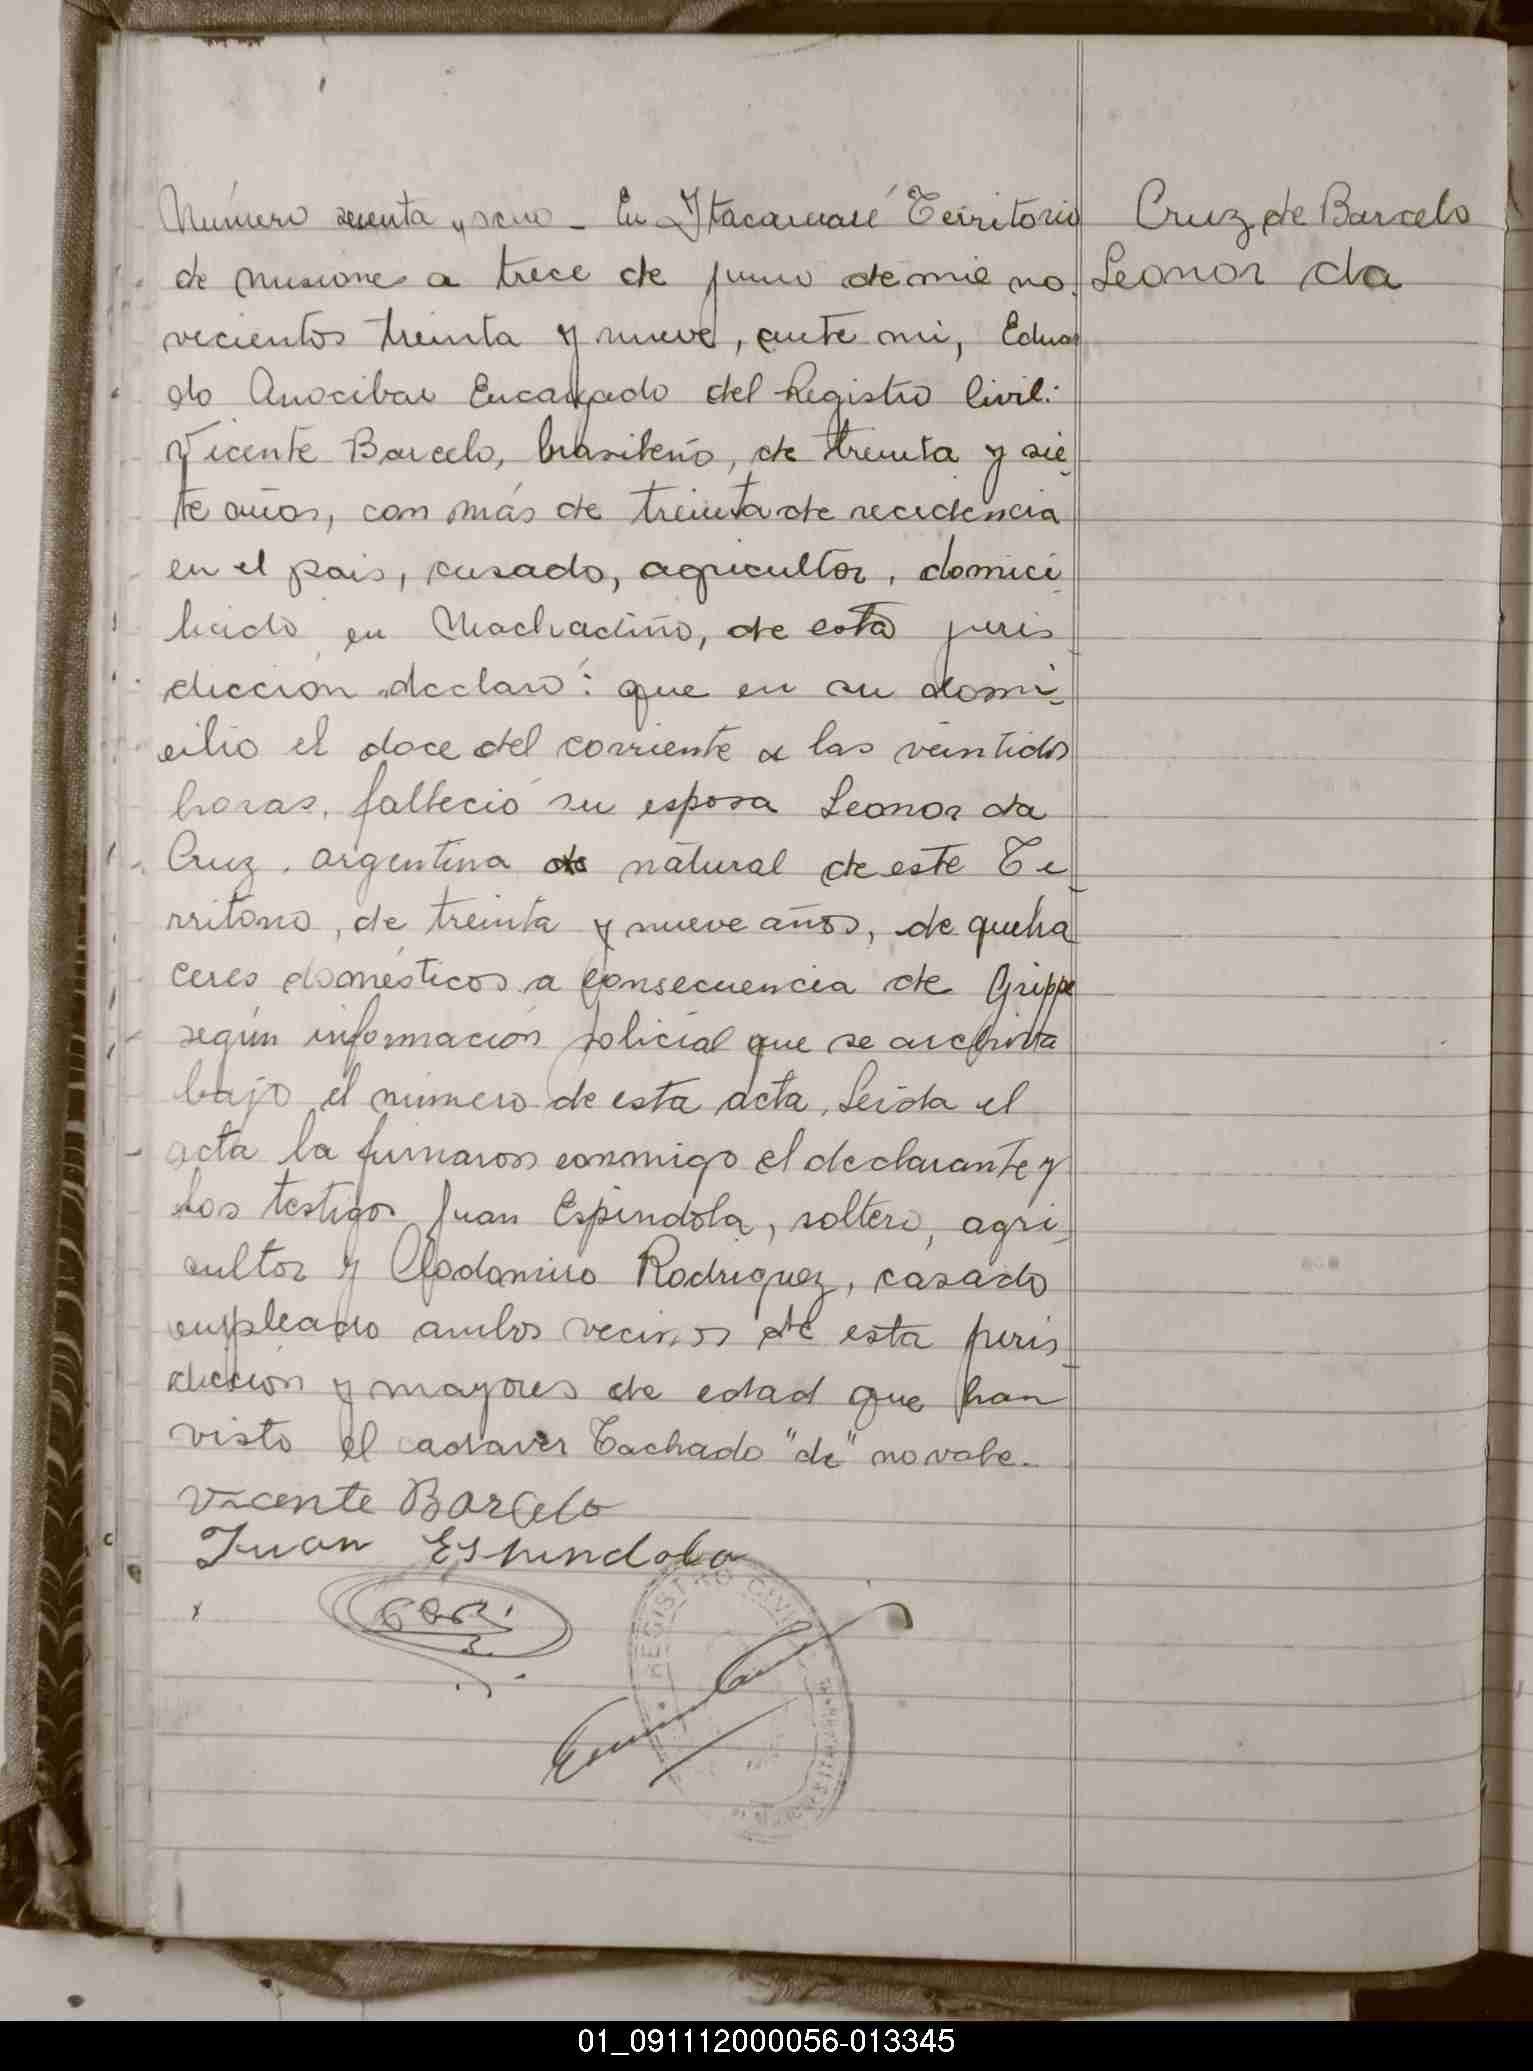 Número sesenta y seis - En Itacaruaré Territorio
de Misiones a trece de junio de mil no-
vecientos treinta y nueve, ante mi, Eduar
do Anocibar Encargado del Registro Civil:
Vicente Barcelo, brasileño, de treinta y sie-
te años, con más de treinta de recidencia
en el pais, casado, agricultor, domici-
liado en Machadiño, de esta juris-
dicción declaró: que en su domi-
cilio el doce del corriente a las veintidos
horas, falleció su esposa Leonor da
Cruz, argentina de natural de este Te-
rritorio, de treinta y nueve años, de queha
ceres domésticos a consecuencia de Grippe
según información policial que se archiva
bajo el número de esta acta, Leída el
acta la firmaron conmigo el declarante y
los testigos Juan Espindola, soltero, agri-
cultor y Clodomiro Rodriguez, casado
empleado ambos vecinos de esta juris-
dicción y mayores de edad que han
visto el cadaver Tachado "de" no vale.
Vicente Barcelo
Juan Espindola
REGISTRO CIVIL
Cruz de Barcelo
Leonor da
01_091112000056-013345